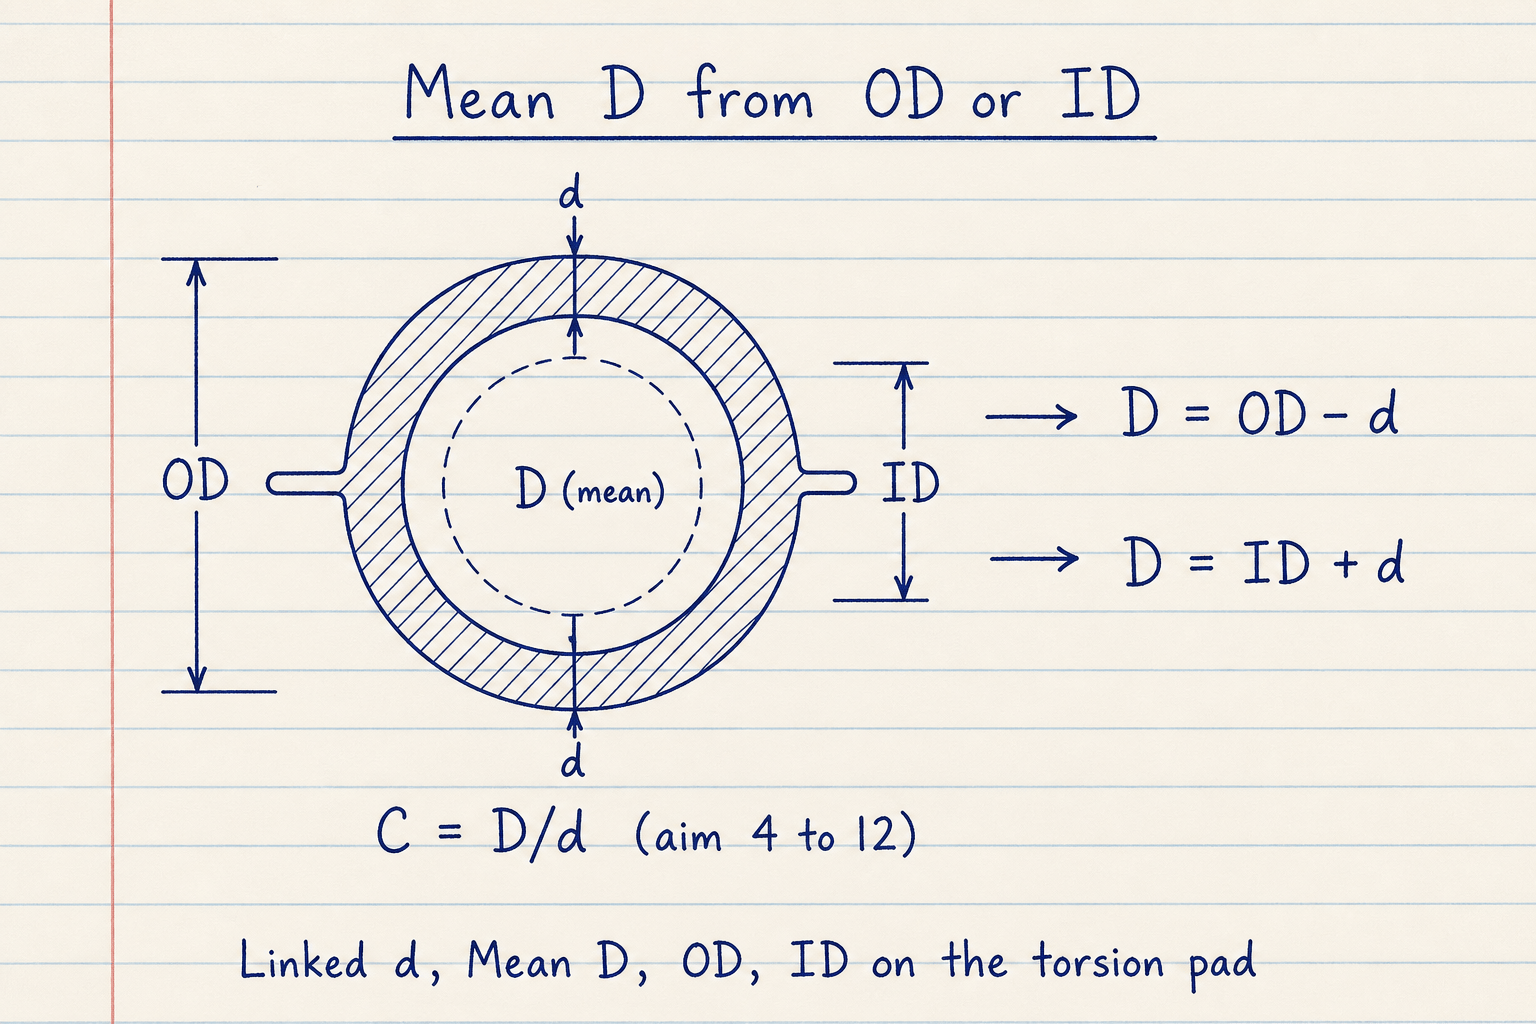 Mean D from OD or ID
d
OD
D (mean)
ID
→ D = OD - d
→ D = ID + d
d
C = D/d (aim 4 to 12)
Linked d, Mean D, OD, ID on the torsion pad